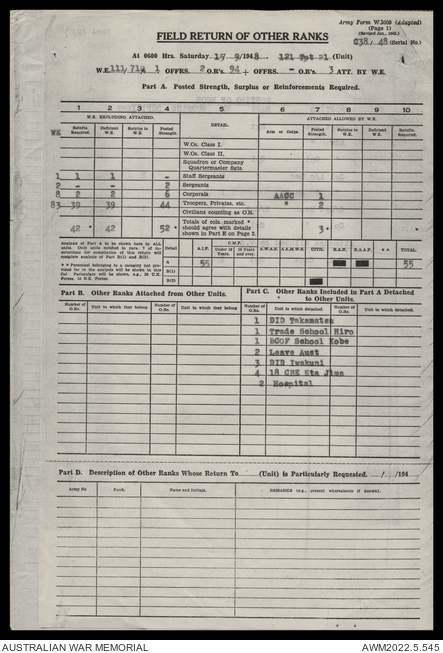 Army Form W.3009 (Adapted)
(Page 1)
(Revised Jan., 1943.)
FIELD RETURN OF OTHER RANKS
C38/ 48 (Serial No.)
At 0600 Hrs. Saturday 9/1948. 121 Tpt Pl (Unit)
W.E. 1 OFFRS. 2 O.R's. 94 + OFFRS. - O.R's. 3 ATT. BY W.E.
Part A. Posted Strength, Surplus or Reinforcements Required.
1 2 3 4 5 6 7 8 9 10
W.E. EXCLUDING ATTACHED. ATTACHED ALLOWED BY W.E.
WE Reinfts. Required. Deficient W.E. Surplus to W.E. Posted Strength DETAIL. Arm or Corps. Posted Strength Surplus to W.E. Deficient W.E. Reinfts. Required.
W.Os. Class I.
W.Os. Class II.
Squadron or Company
Quartermaster Sgts.
1 1 1 - Staff Sergeants
2 - - 2 Sergeants
8 2 2 6 Corporals AACC 1
83 39 39 44 Troopers, Privates, etc. " 2
Civilians counting as O.R.
42 * 42 52 * Totals of cols. marked * should agree with details shown in Part E on Page 2. 3 *
Analysis of Part A to be shown here by ALL units.
Detail A.I.F. C.M.F. Under 19 Years. 19 Years and over. A.W.A.S. A.A.M.W.S. CIVIL R.A.N. R.A.A.F. ** TOTAL.
A 55 55
B(1)
B(2)
Part B. Other Ranks Attached from Other Units.
Part C. Other Ranks Included in Part A Detached
to Other Units.
Number of O.Rs. Unit to which they belong Number of O.Rs. Unit to which they belong Number of O.Rs. Unit to which detached. Number of O.Rs. Unit to which detached.
1 DID Takamatsu
1 Trade School Hiro
1 BCOF School Kobe
2 Leave Aust
3 DID Iwakuni
4 18 CRE Eta Jima
2 Hospital
Part D. Description of Other Ranks Whose Return To (Unit) is Particularly Requested. / /194
Army No Rank. Name and Initials. REMARKS (e.g., present whereabouts if known).
AUSTRALIAN WAR MEMORIAL
AWM2022.5.545